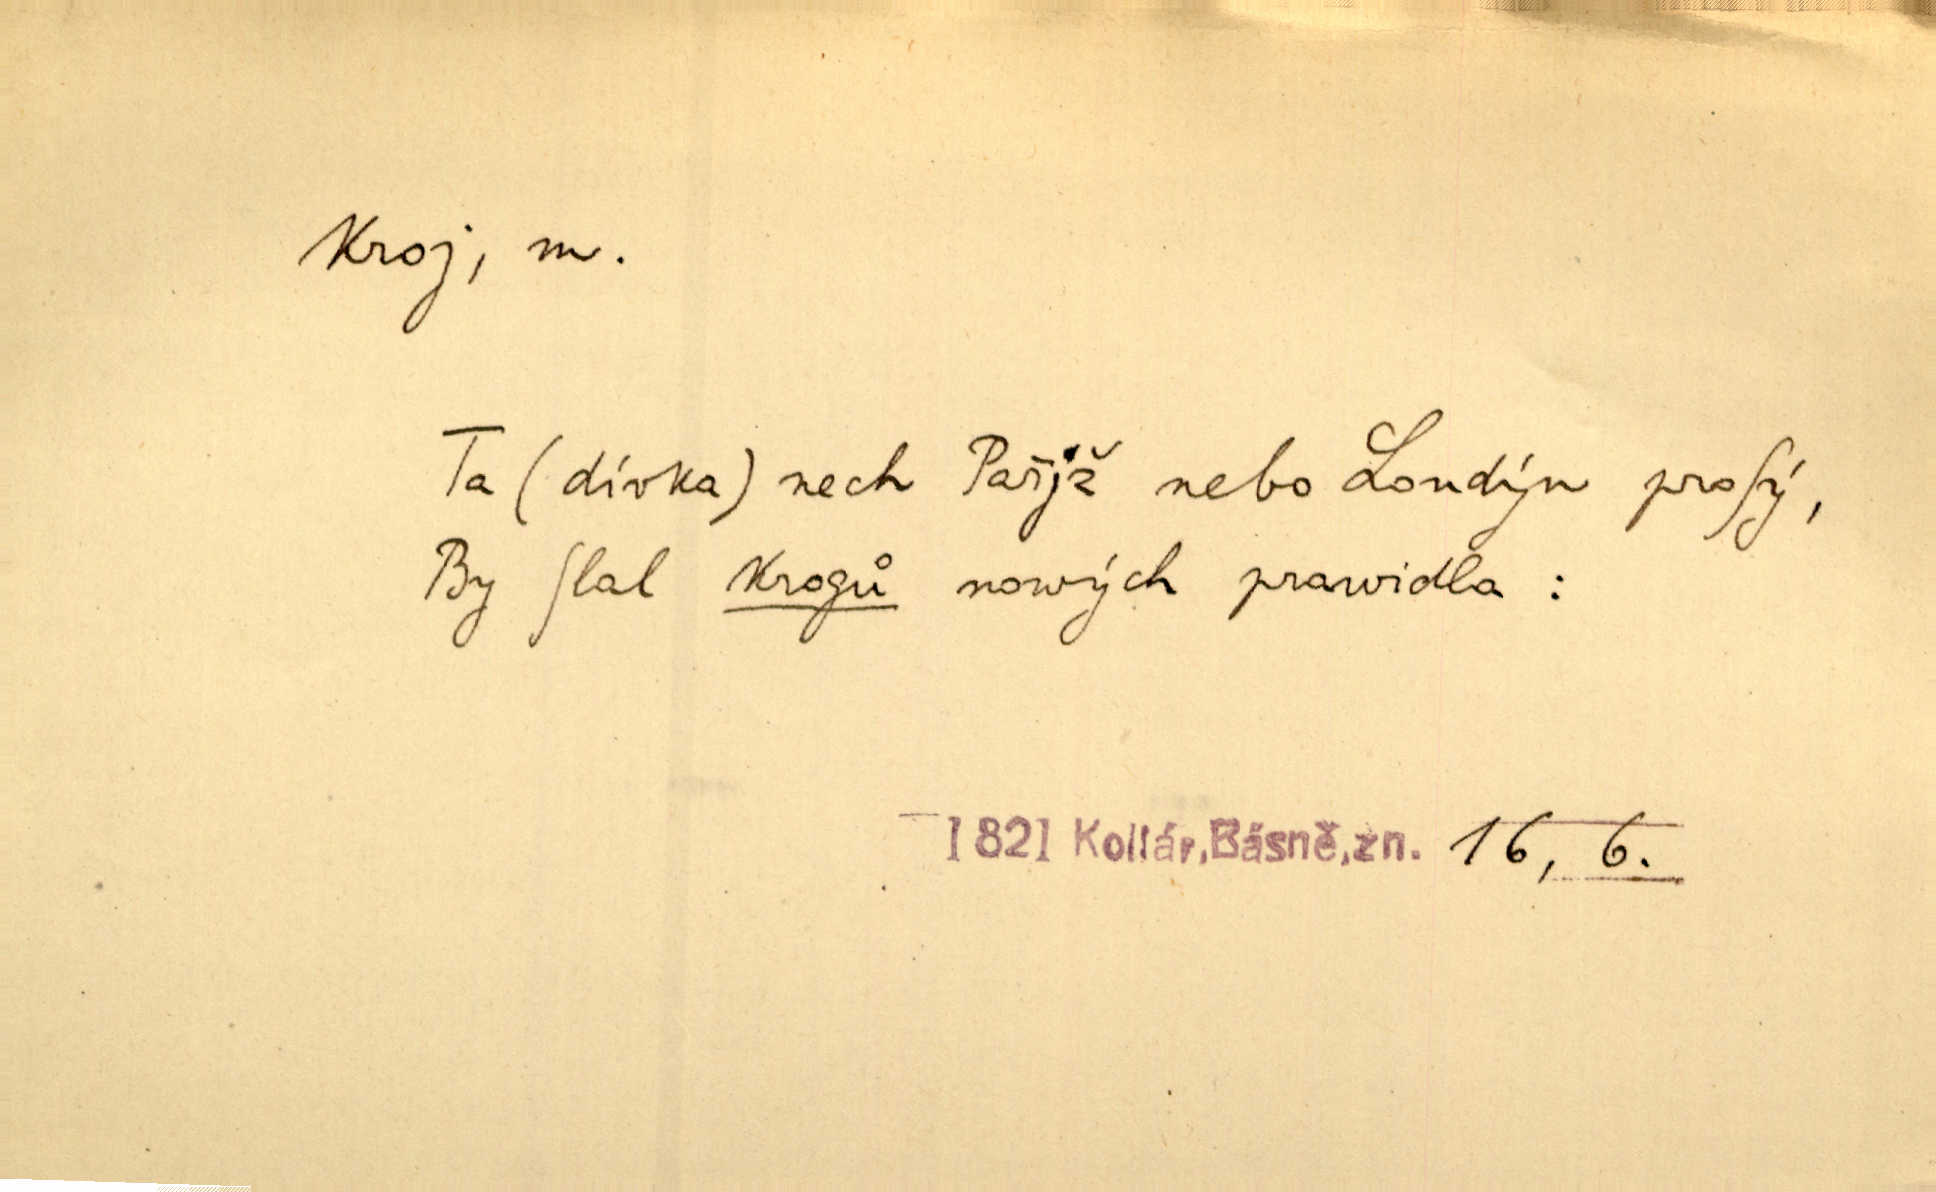 Kroj, m.
Ta (dívka) nech Pařjž nebo Londýn proſý,
By ſlal krogů nowých prawidla :
1821 Kollár, Básně, zn. 16, 6.